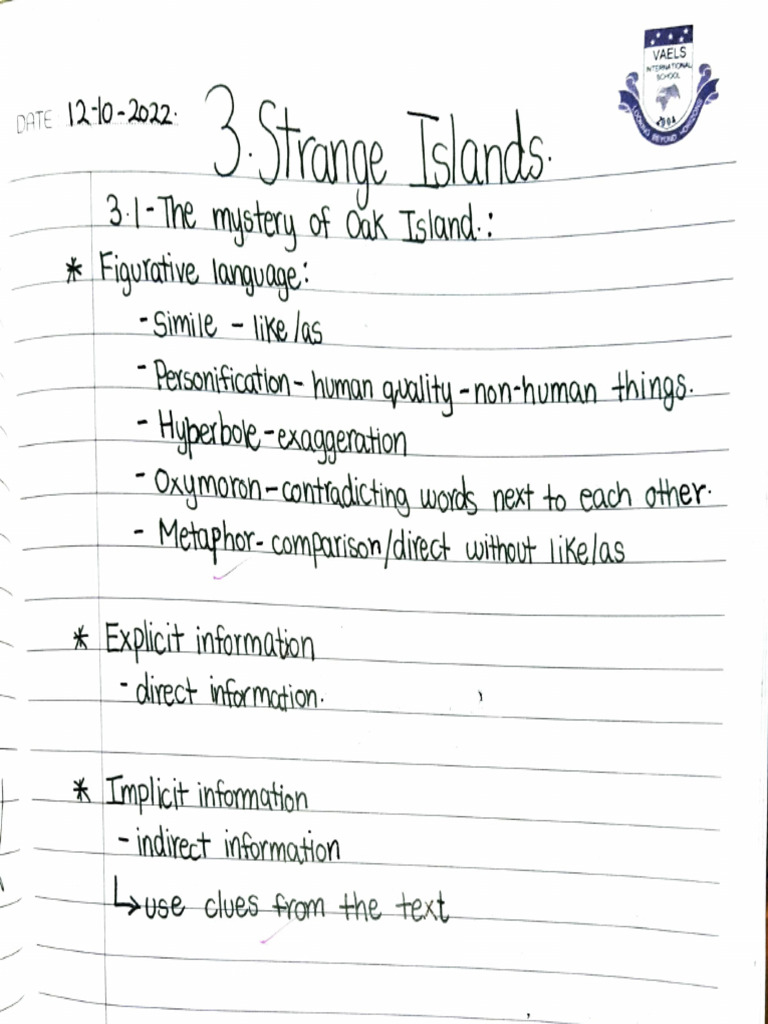 VAELS
INTERNATIONAL
SCHOOL
2004
LOOKING BEYOND HORIZONS
DATE 12-10-2022.
3. Strange Islands.
3.1-The mystery of Oak Island.:
* Figurative language:
- Simile - like/as
- Personification - human quality - non-human things.
- Hyperbole - exaggeration
- Oxymoron - contradicting words next to each other.
- Metaphor - comparison/direct without like/as
* Explicit information
- direct information.
* Implicit information
- indirect information
↳ use clues from the text